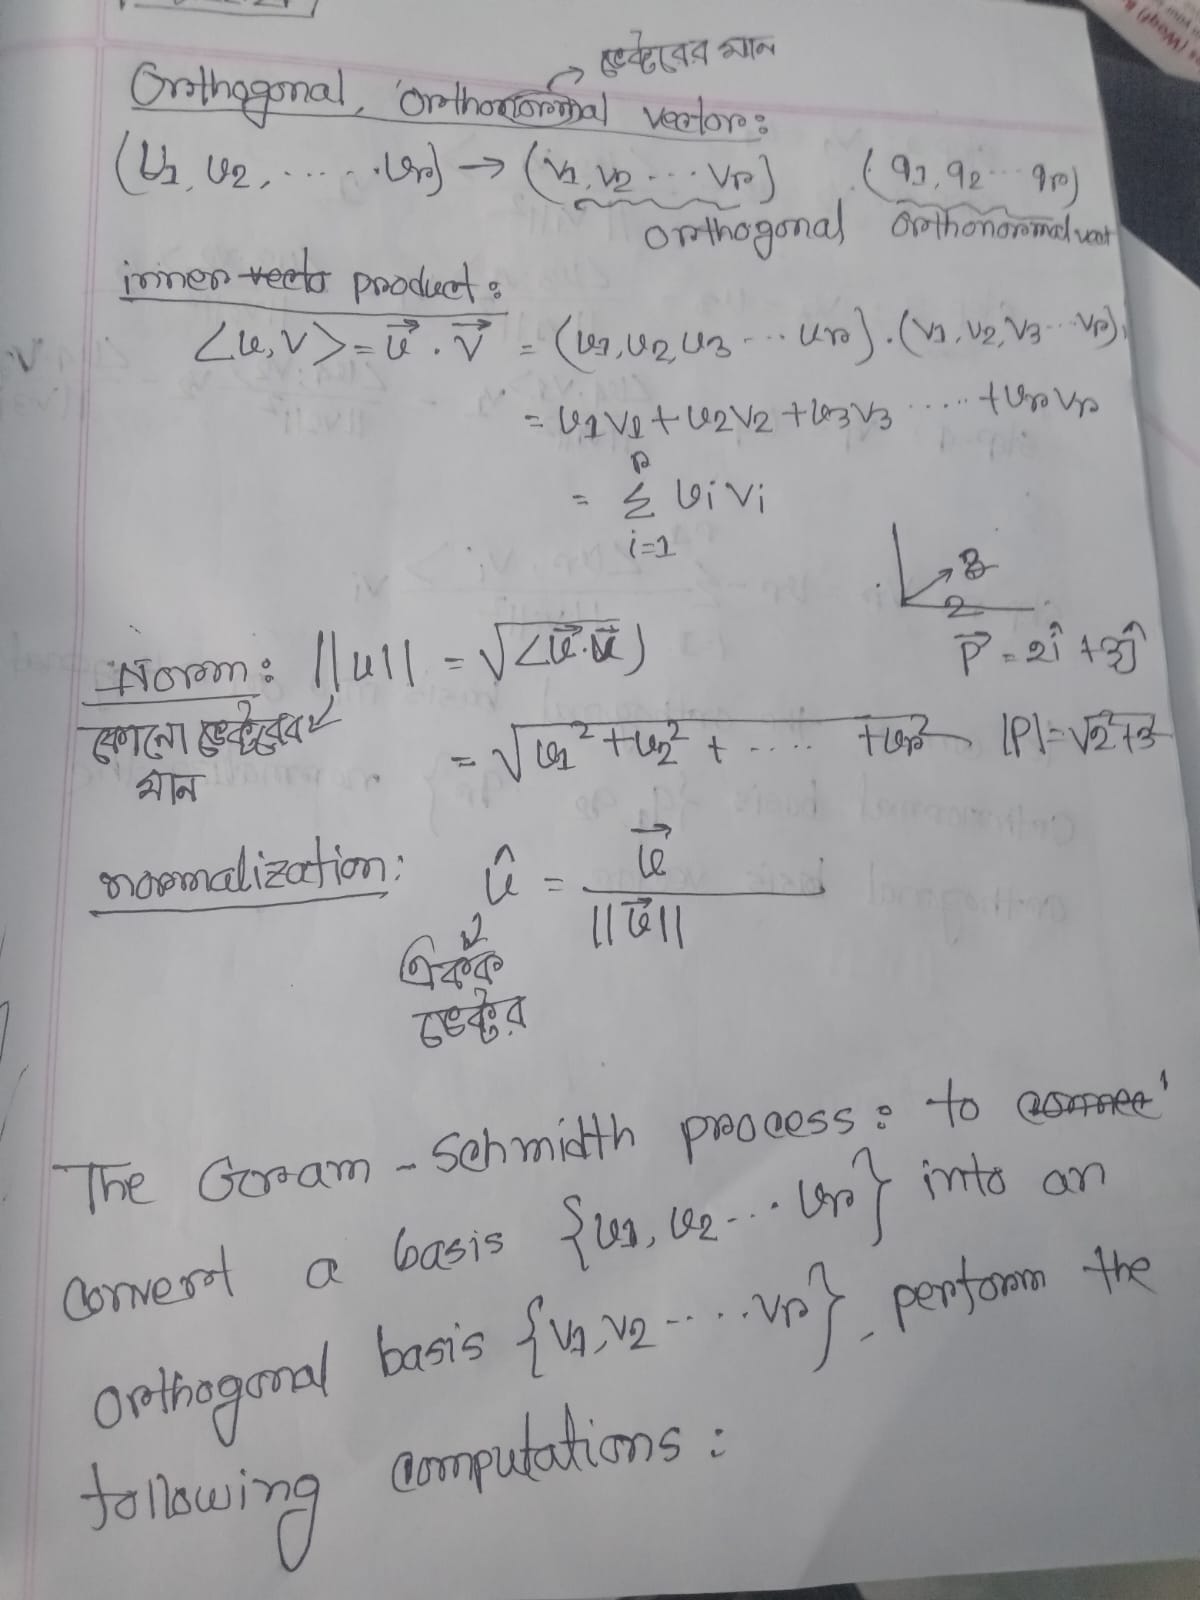 ভেক্টরের মান
Orthogonal, orthonormal vector:
(u1, u2, ...... ur) → (v1, v2 ... vr) (q1, q2 ... qr)
orthogonal orthonormal vect
inner vecto product:
<u, v> = u⃗ . v⃗ = (u1, u2, u3 ... ur) . (v1, v2, v3 ... vr)
= u1v1 + u2v2 + u3v3 ..... + ur vr
= r Σ i=1 ui vi
3
2
P⃗ = 2î + 3ĵ
Norm: ||u|| = √(<u⃗.u⃗)
কোনো ভেক্টরের
মান
= √u1² + u2² + .... + ur² |P| = √2²+3
normalization: û = u⃗ / ||u⃗||
একক
ভেক্টর
The Gram - Schmidth process: to
convert a basis {u1, u2 ... ur} into an
orthogonal basis {v1, v2 ..... vr}, perform the
following computations: